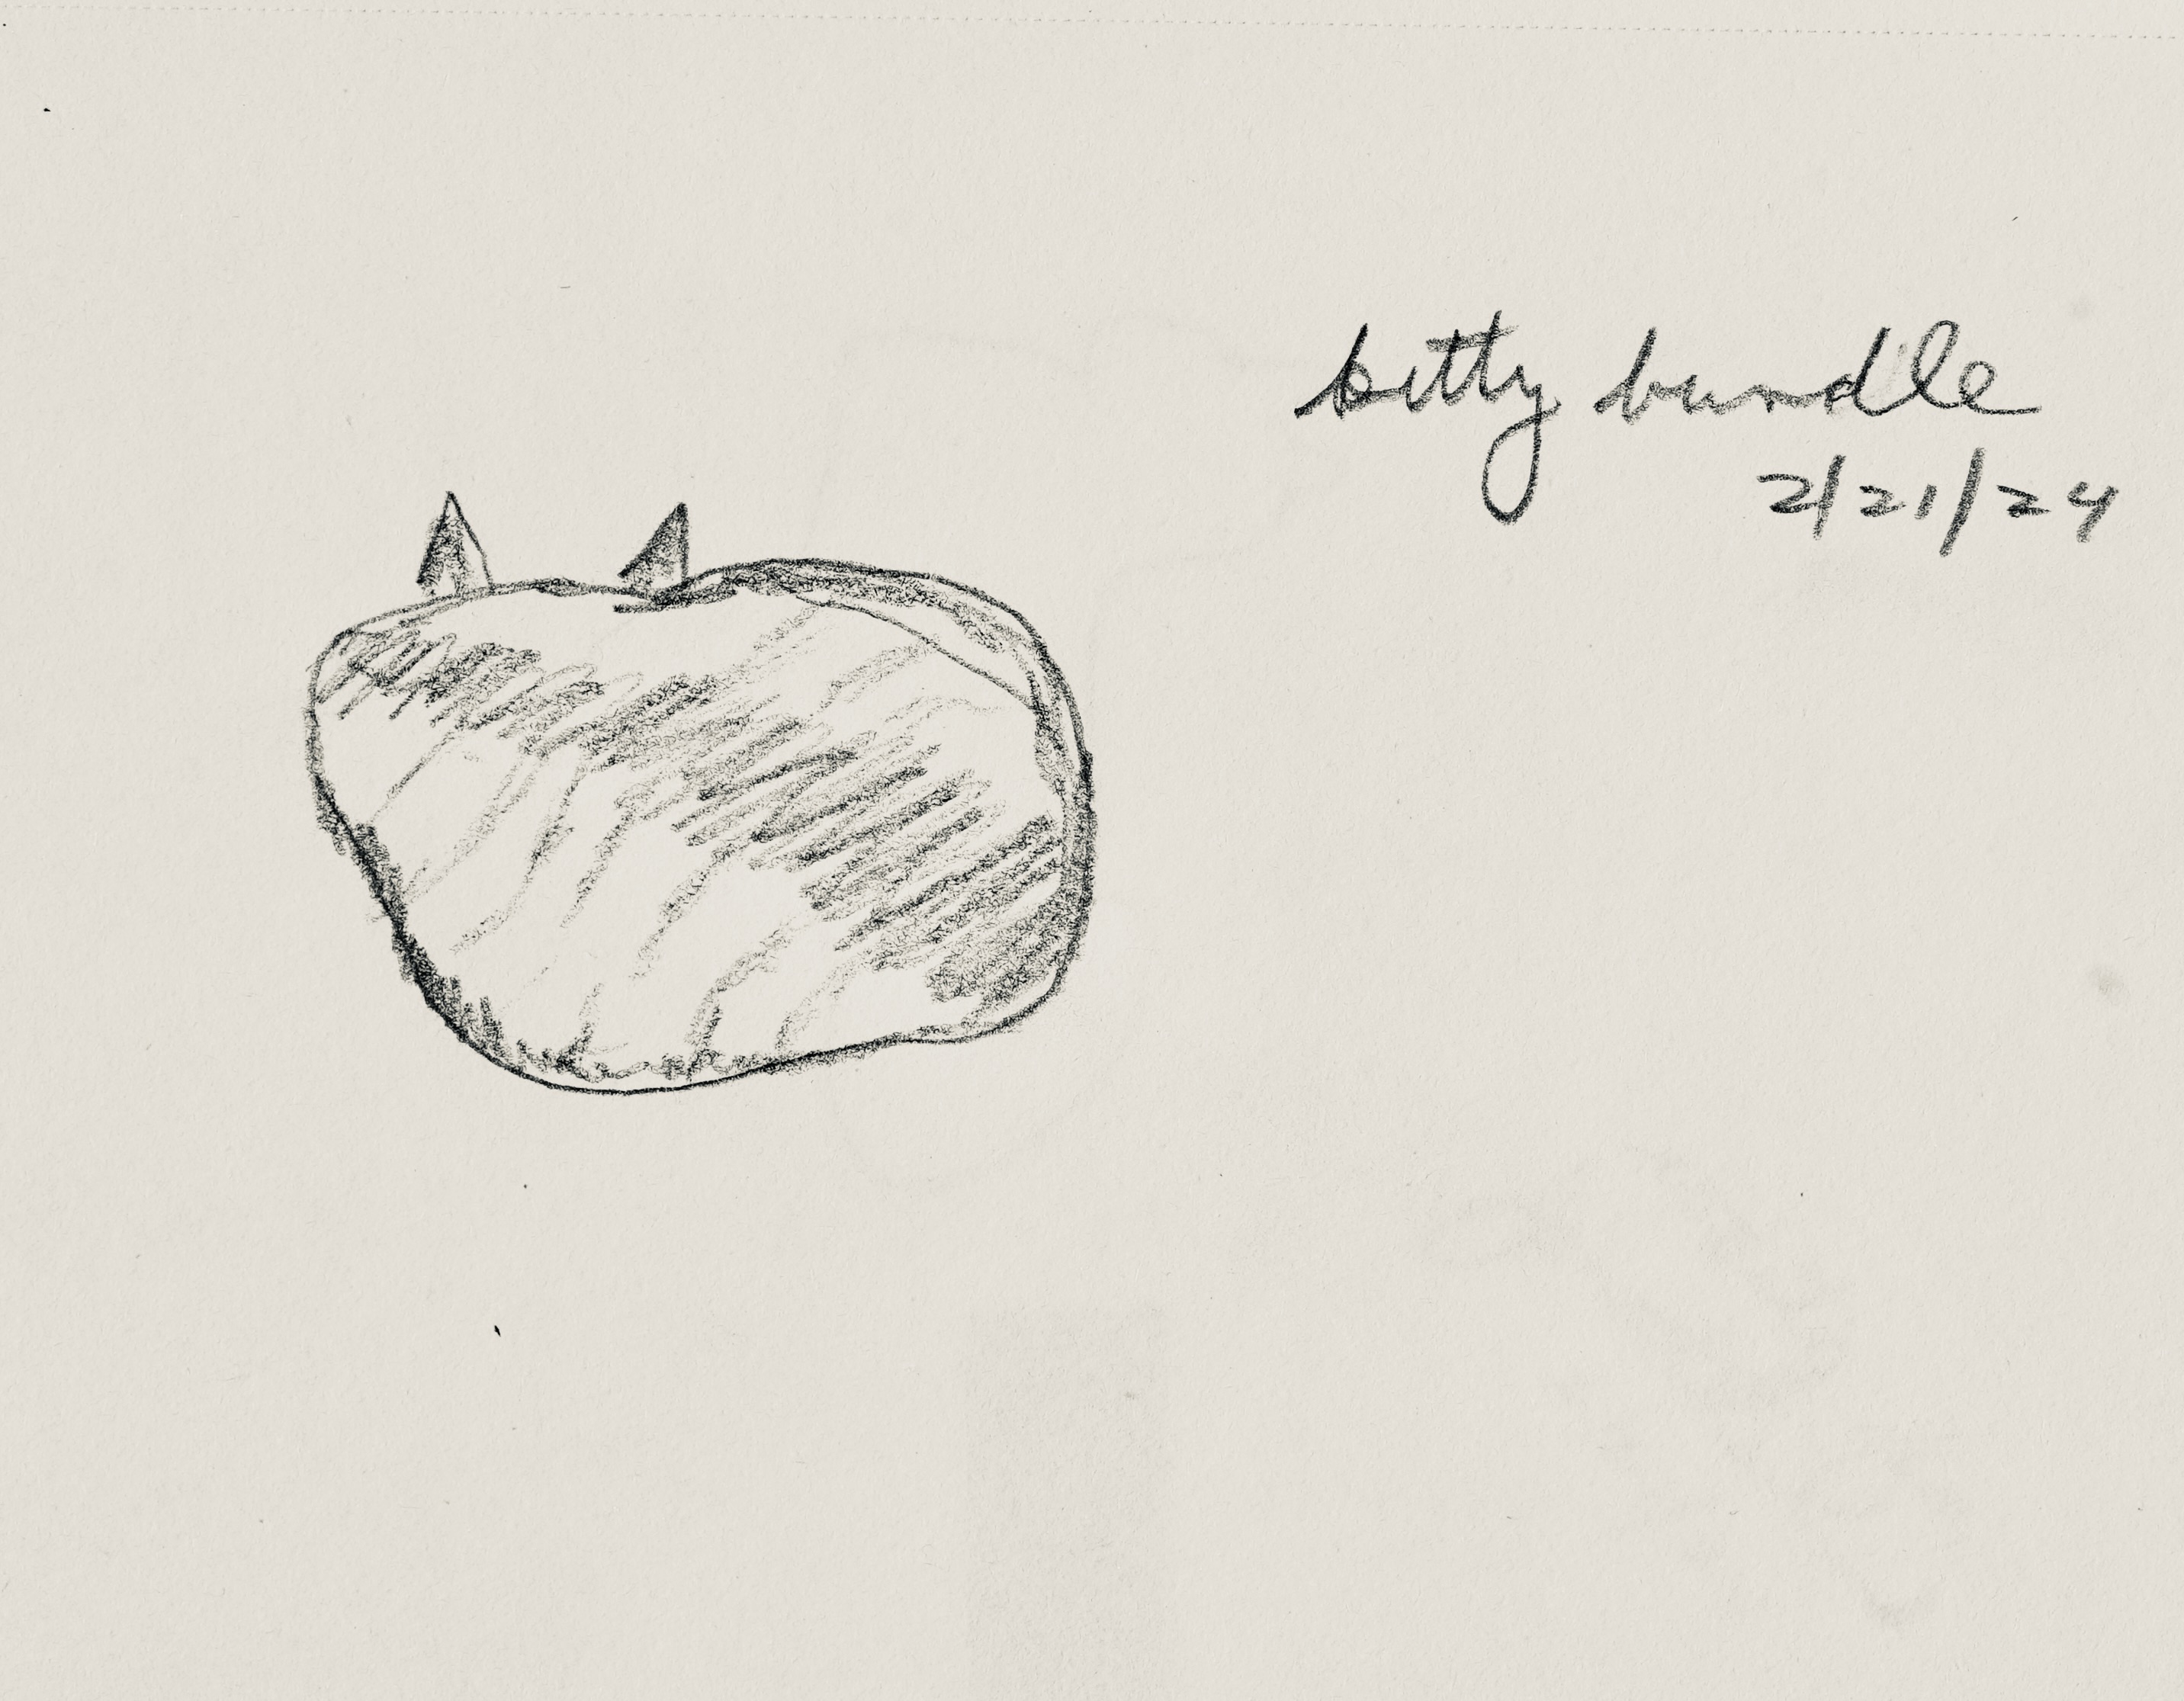 kitty bundle
2/21/24